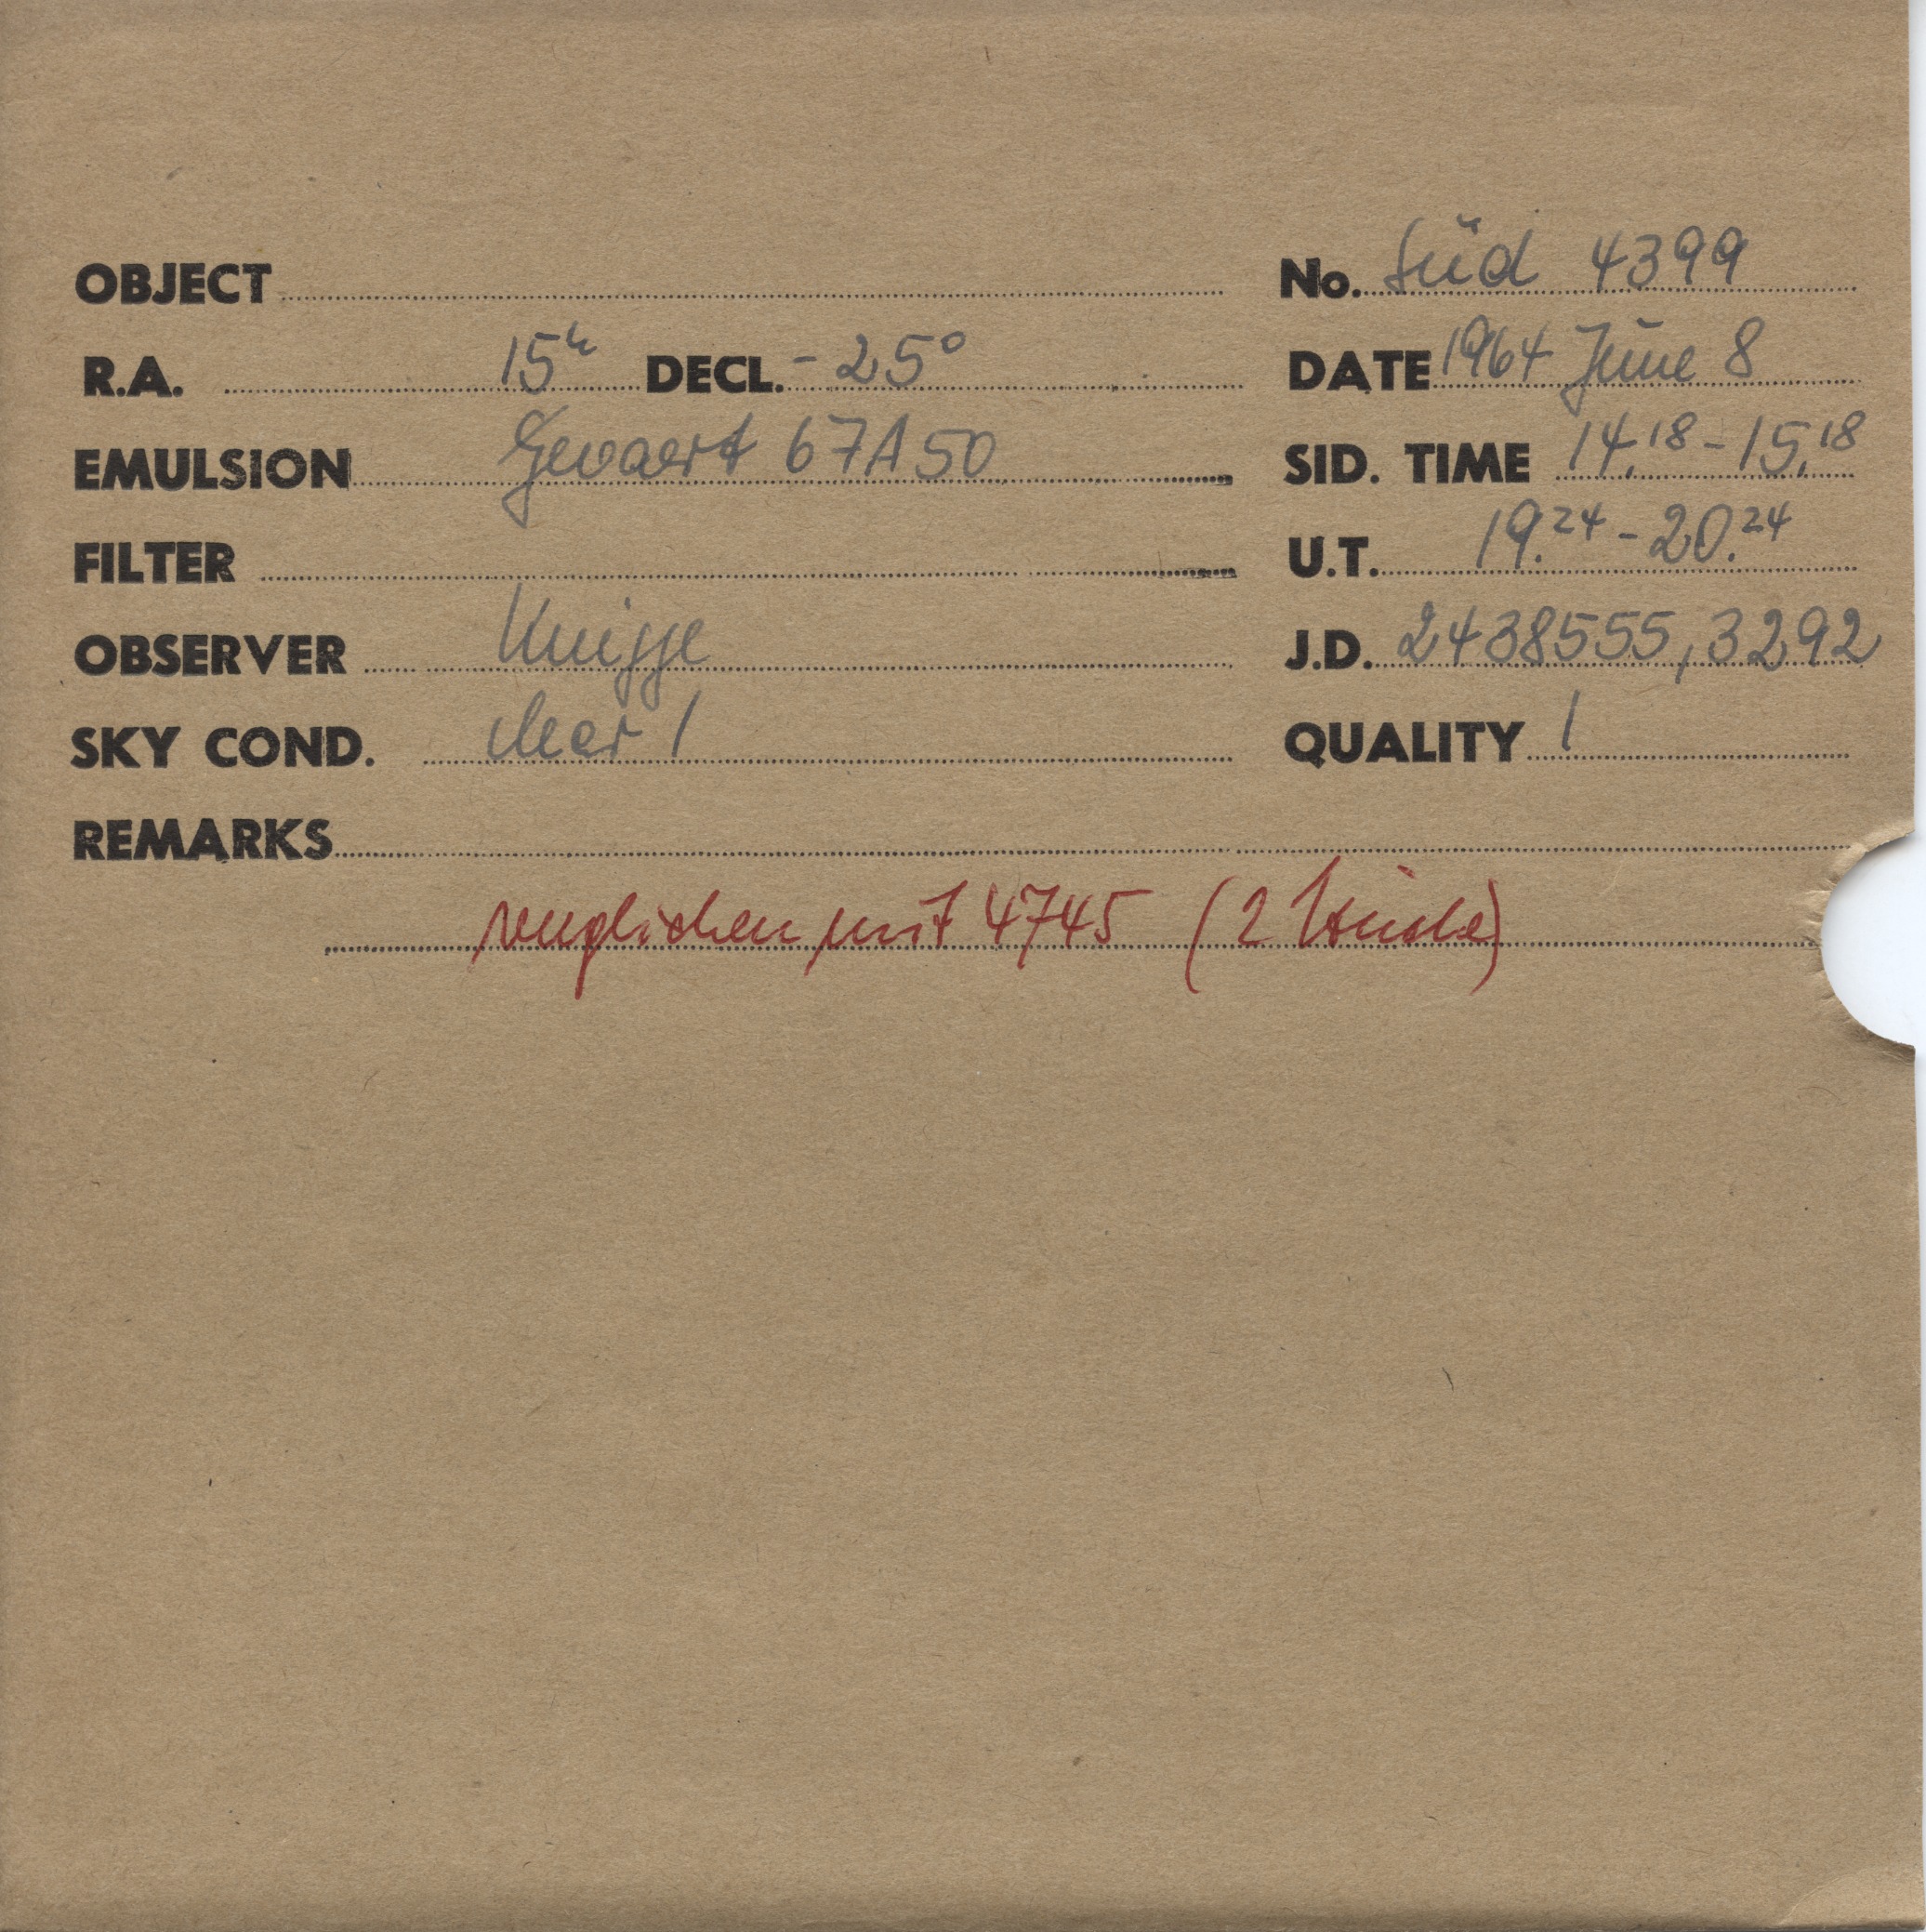 OBJECT No. Süd 4399
R.A. 15ʰ DECL. -25° DATE 1964 June 8
EMULSION Gevaert 67A50 SID. TIME 14.18-15.18
FILTER U.T. 19.24-20.24
OBSERVER Knigge J.D. 2438555,3292
SKY COND. clear 1 QUALITY 1
REMARKS
verglichen mit 4745 (2